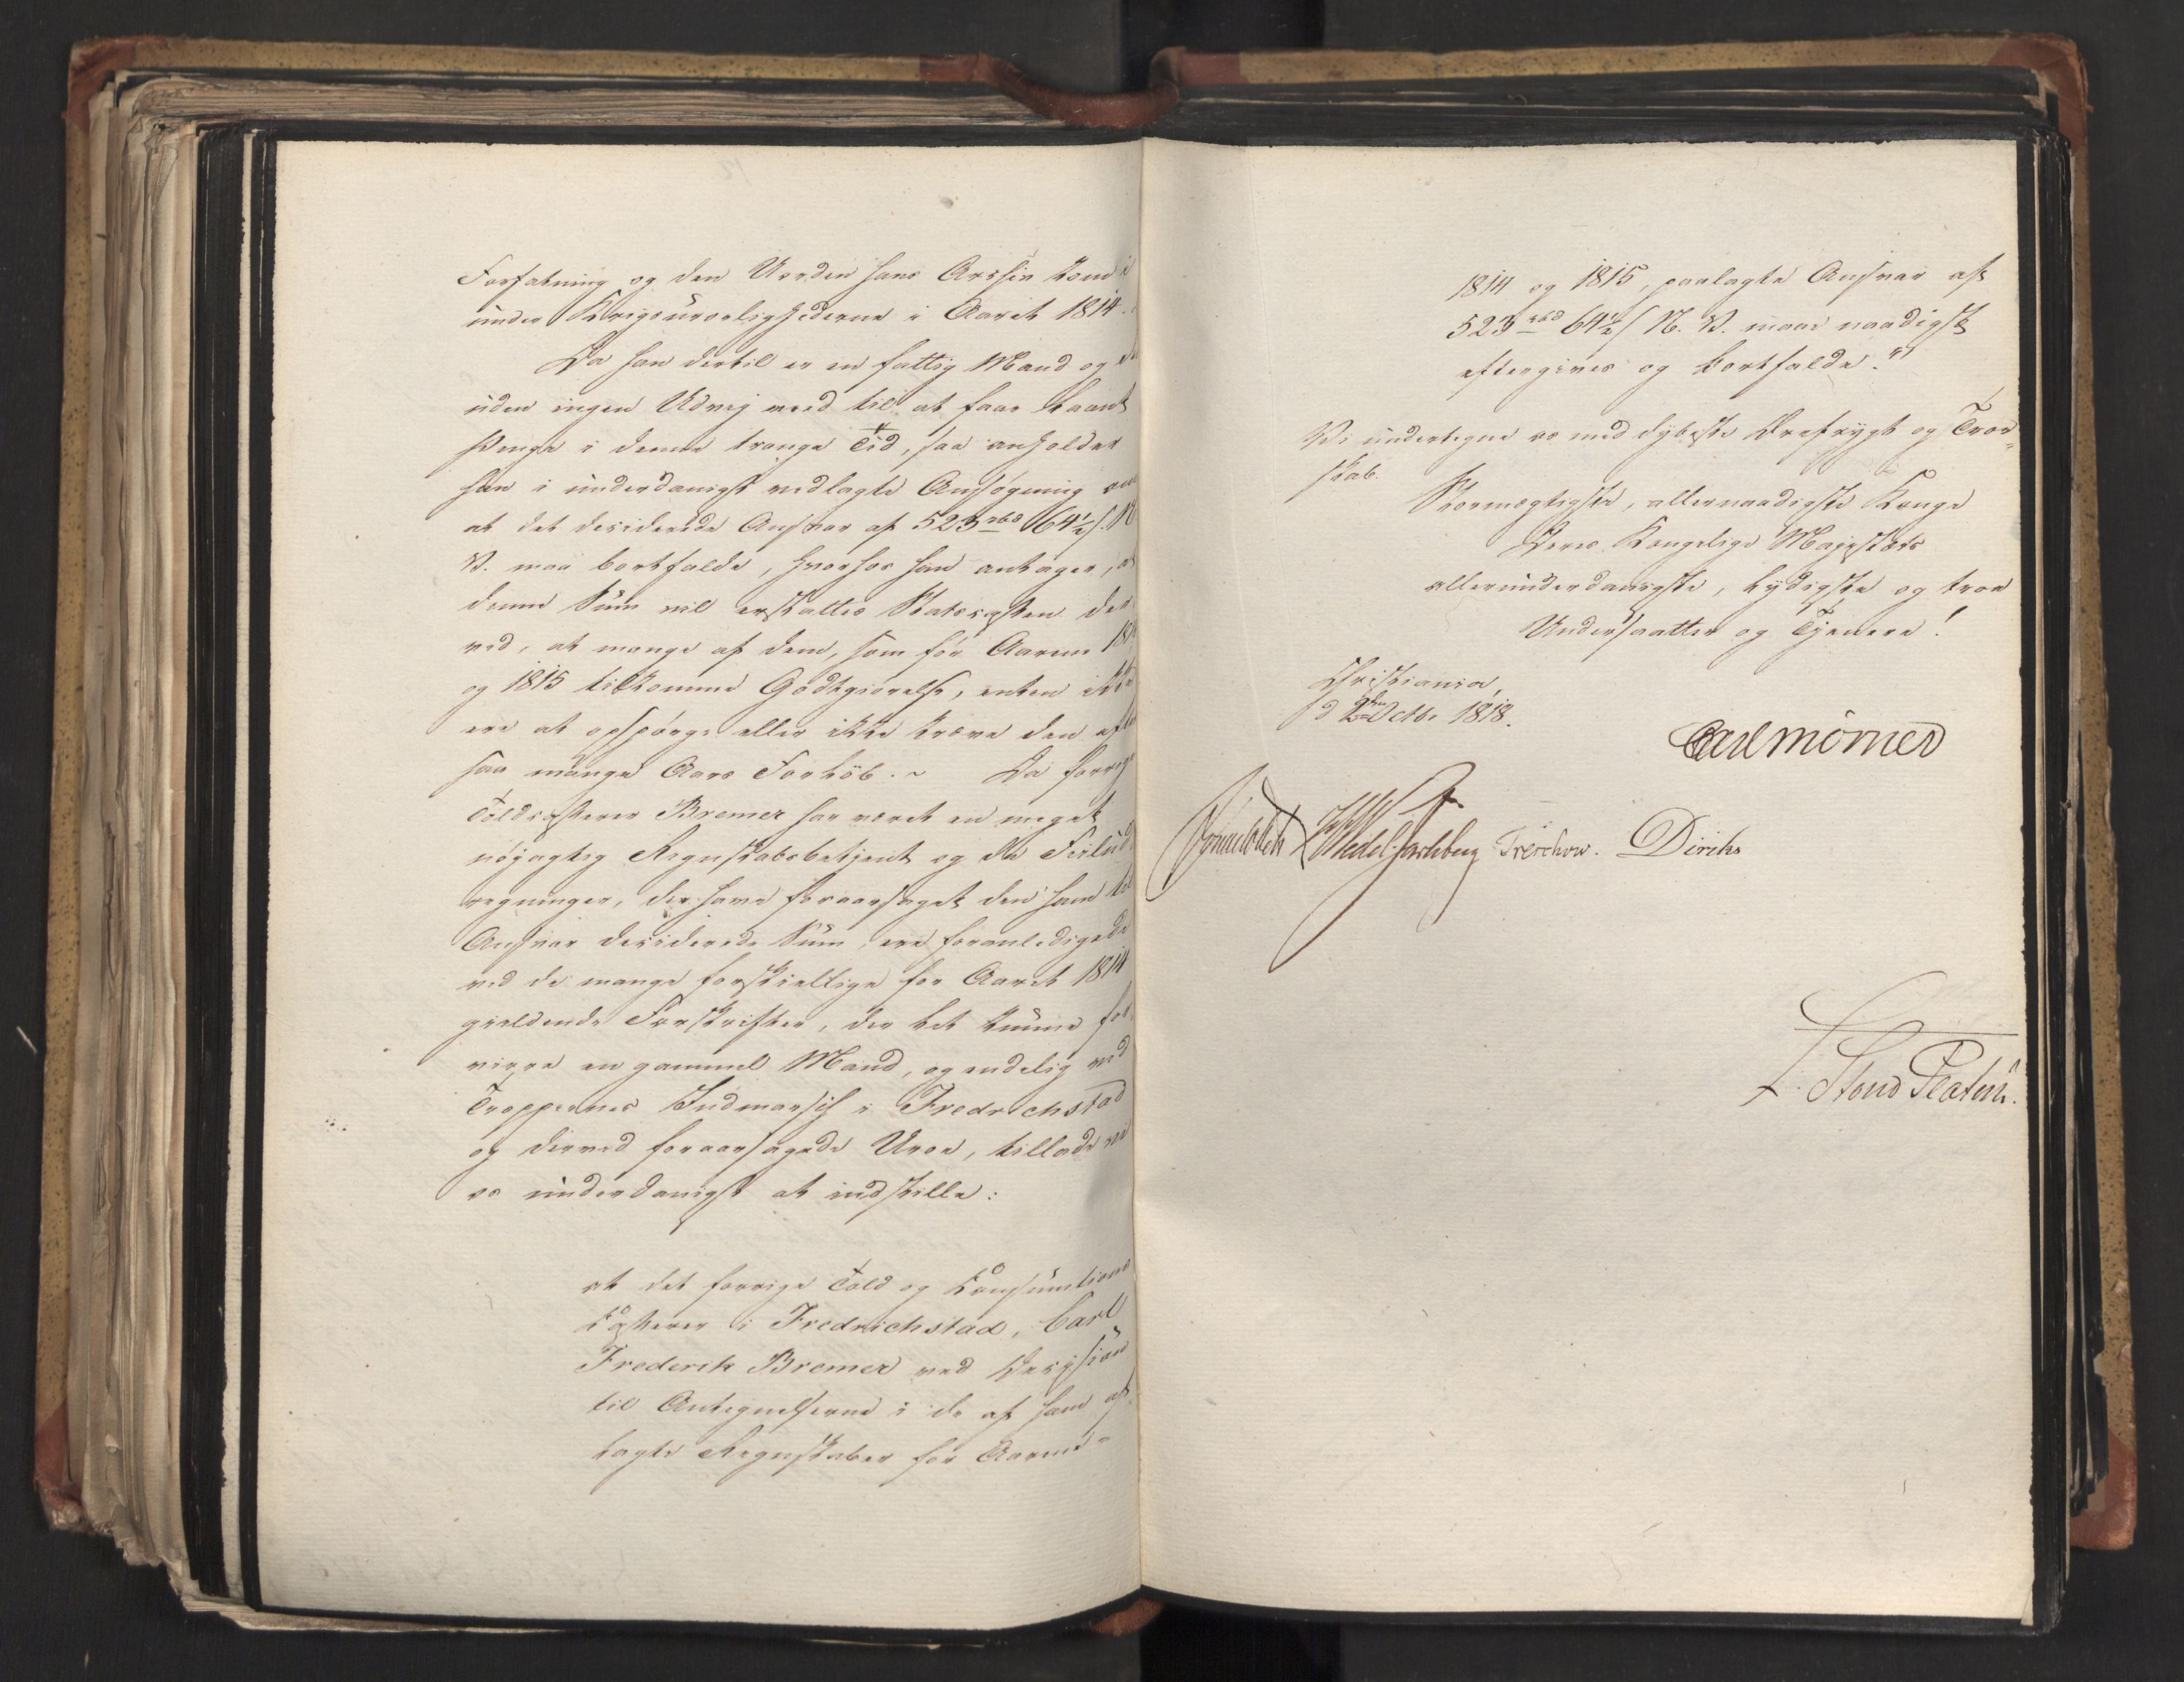 Forfatning og den Uorden hans Archiv kom i
under Krigsuroelighederne i Aaret 1814.
Da han dertil er en fattig Mand og
uden ingen Udvej veed til at faae laant
Penge i denne trange Tid, saa anholder
han i underdanigst vedlagte Ansøgning om
at det desiderede Ansvar af 523 rbd 64½ s. N.
V. maa bortfalde, hvorhos han antager, at
denne Sum vil erstattes Statscassen der
ved, at mange af dem, som for Aarene 1814
og 1815 tilkomme Godtgiørelse, enten ikke
ere at opspørge eller ikke kræve den efter
saa mange Aars Forløb. ~ Da forrige
Toldcasserer Bremer har været en meget
nøjagtig Regnskabsbetjent og da Fejl
regninger, der have foraarsaget den ham til
Ansvar desiderede Sum, ere foranledigede
ved de mange forskiellige for Aaret 1814
gieldende Forskrifter, der let kunne for
virre en gammel Mand, og endelig ved
Troppernes Indmarsch i Fredrichstad
og derved foraarsagede Uroe, tillade vi
os underdanigst at indstille:
at det forrige Told og Consumtions
Casserer i Fredrichstad, Carl
Frederik Bremer ved Decision
til Antegnelserne i de af ham af
lagte Regnskaber for Aarene
1814 og 1815, paalagte Ansvar af
523 rbd 64½ s N. V. maae naadigst
eftergives og bortfalde."
Vi undertegne os med dybeste Ærefrygt og Troe
skab.
Stormægtigste, allernaadigste Konge
Deres Kongelige Majestæts
allerunderdanigste, lydigste og troe
Undersaatter og Tjenere!
Christiania,
d 2den Octbr 1818.
Carl Mörner
Sommerhielm Wedel Jarlsberg Treschow. Diriks
L. Stoud Platou.